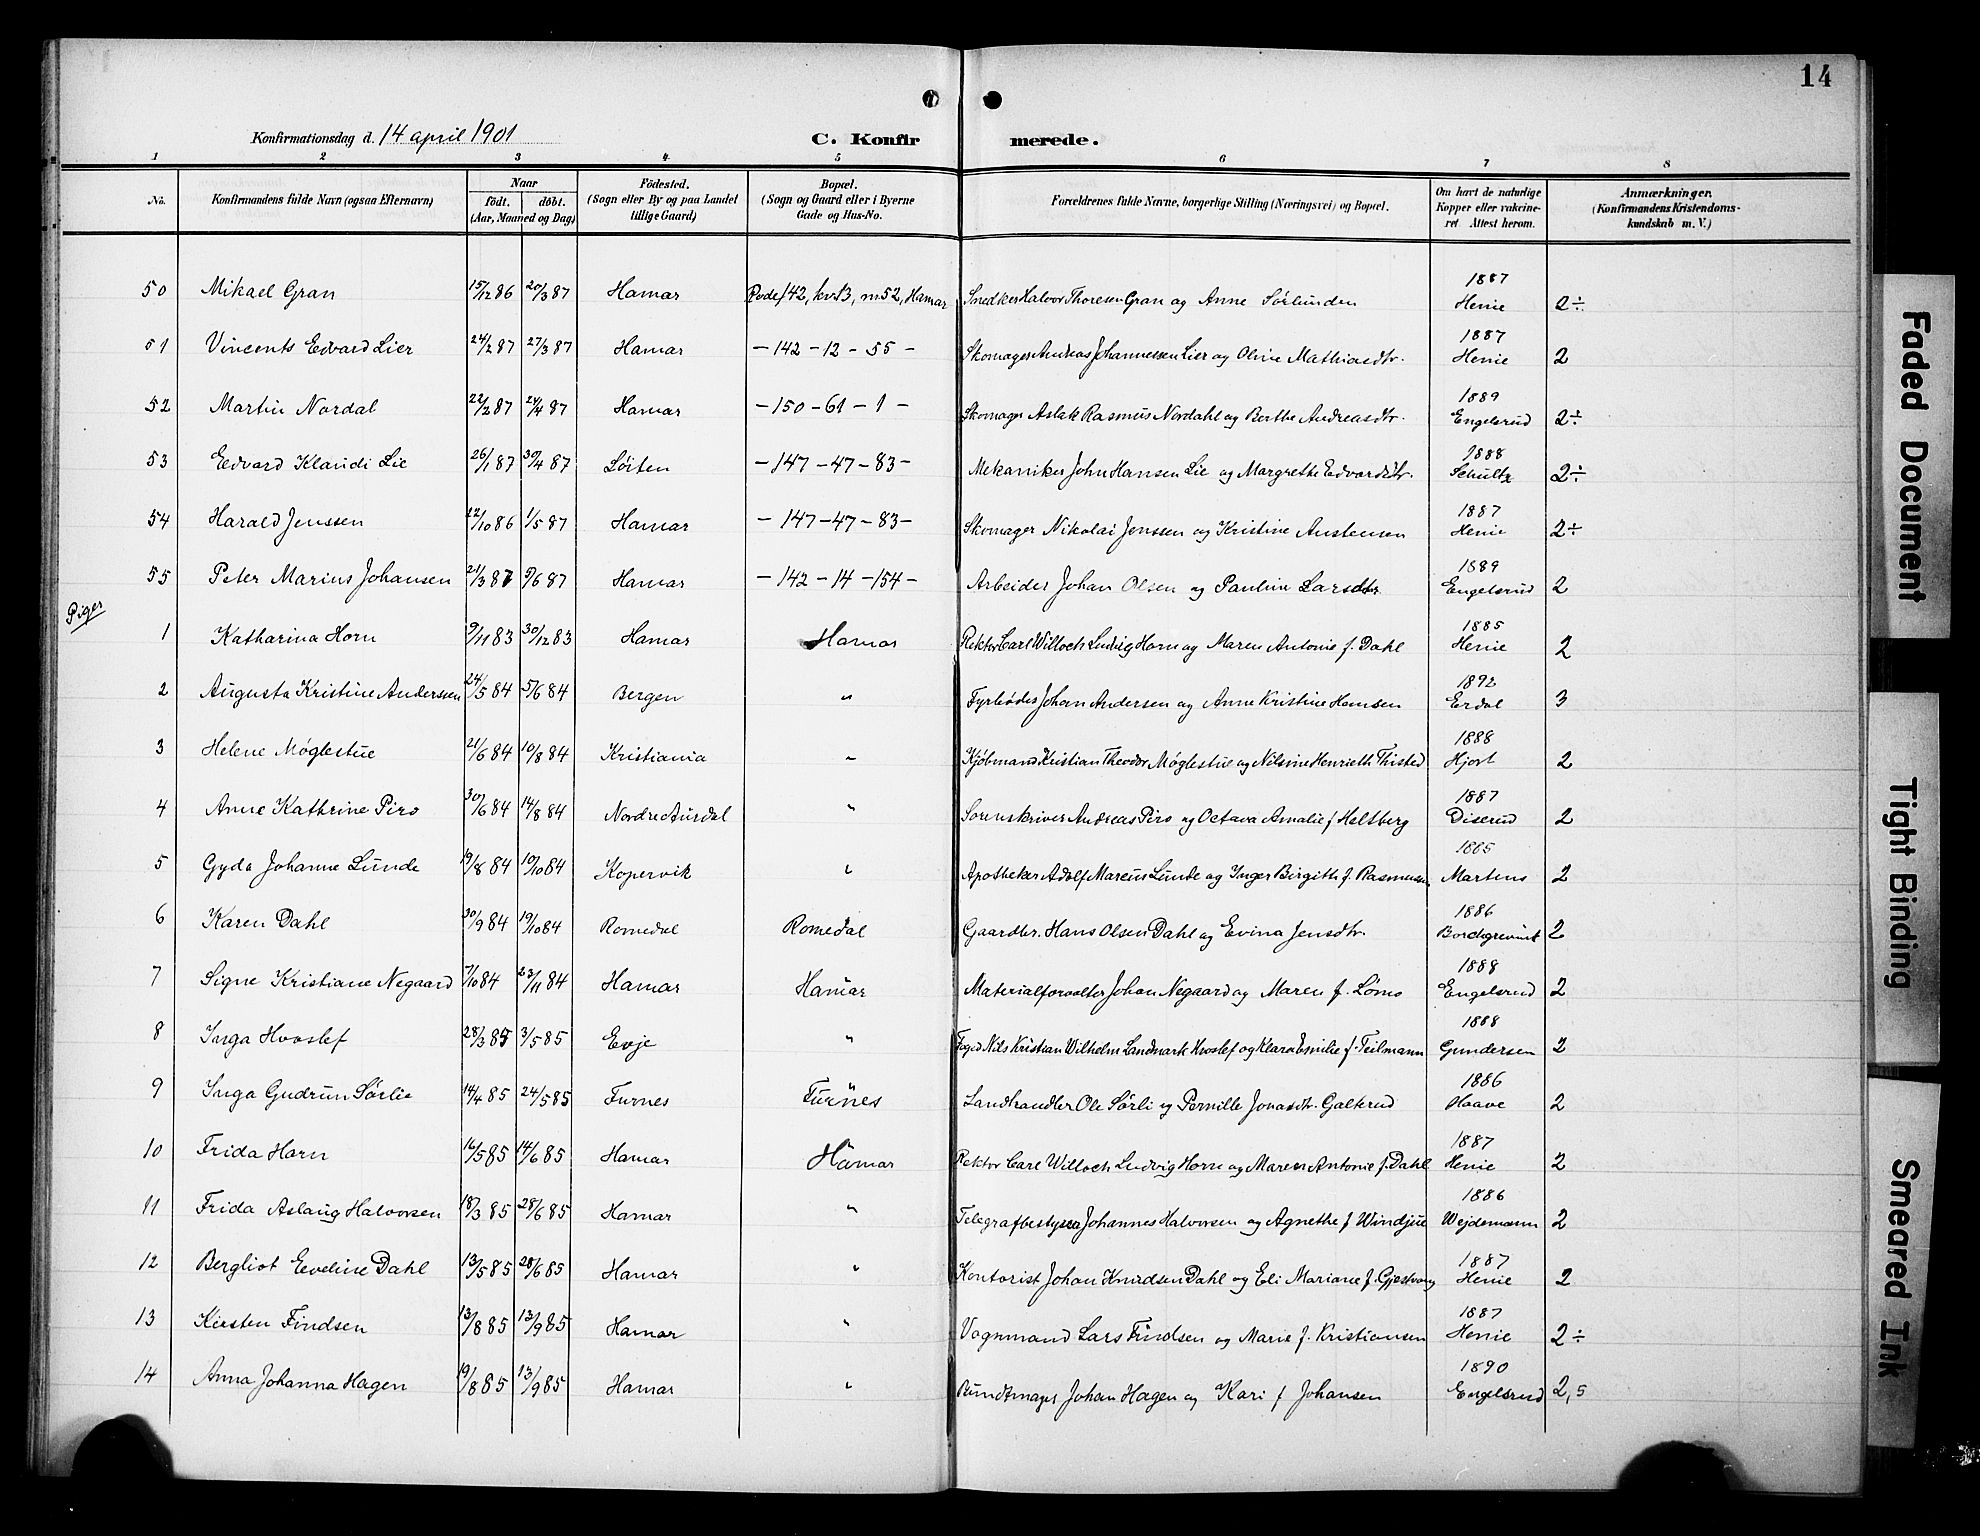 14
Konfirmationsdag d. 14 april 1901 C. Konfirmerede.
1 2 3 4 5 6 7 8
No. Konfirmandens fulde Navn (ogsaa Efternavn) Naar født. døbt. (Aar, Maaned og Dag) Fødested. (Sogn eller By og paa Landet tillige Gaard) Bopæl. (Sogn og Gaard eller i Byerne Gade og Hus-No. Forældrenes fulde Navne, borgerlige Stilling (Næringsvei) og Bopæl. Om havt de naturlige Kopper eller vakcineret Attest herom. Anmærkninger. (Konfirmandens Kristendomskundskab m. V.)
50 Mikael Gran 15/12 86 20/3 87 Hamar Rode 142, kv. 13, m 52, Hamar Snedker Halvor Thoresen Gran og Anne Sørlunden 1887 Henie 2÷
51 Vincents Edvard Lier 24/2 87 27/3 87 Hamar – 142 – 12 – 55 – Skomager Andreas Johannessen Lier og Oline Mathiasdtr. 1887 Henie 2
52 Martin Nordal 22/2 87 24/4 87 Hamar – 150 – 61 – 1 – Skomager Aslak Rasmus Nordahl og Berthe Andreasdtr. 1889 Engelsrud 2÷
53 Edvard Klaudi Lie 26/1 87 30/4 87 Löiten – 147 – 47 – 83 – Mekaniker John Hansen Lie og Margrethe Edvardsdtr. 1888 Schultz 2÷
54 Harald Jenssen 22/10 86 1/5 87 Hamar – 147 – 47 – 83 – Skomager Nikolai Jenssen og Kristine Austensen 1887 Henie 2÷
55 Peter Marius Johansen 21/3 87 9/6 87 Hamar – 142 – 14 – 154 – Arbeider Johan Olsen og Pauline Larsdtr 1889 Engelsrud 2
Piger
1 Katharina Horn 9/11 83 30/12 83 Hamar Hamar Rektor Carl Willoch Ludvig Horn og Maren Antonie f. Dahl 1885 Henie 2
2 Augusta Kristine Anderssen 24/5 84 5/6 84 Bergen " Fyrbøder Johan Andersen og Anne Kristine Hansen 1892 Erdal 3
3 Helene Møglestue 21/6 84 10/8 84 Kristiania " Kjøbmand Kristian Theodor Møglestue og Nilsine Henrieth Thisted 1888 Hjort 2
4 Anne Kathrine Piro 30/6 84 14/8 84 Nordre Aurdal " Sorenskriver Andreas Piro og Octava Amalie f Heltberg 1887 Diserud 2
5 Gyda Johanne Lunde 19/8 84 10/10 84 Kopervik " Apotheker Adolf Marcus Lunde og Inger Birgith f. Rasmussen 1885 Martens 2
6 Karen Dahl 30/9 84 19/10 84 Romedal Romedal Gaardbr. Hans Olsen Dahl og Evina Jensdtr. 1886 Borchgrevink 2
7 Signe Kristiane Negaard 7/10 84 23/11 84 Hamar Hamar Materialforvalter Johan Negaard og Maren f. Lømo 1888 Engelsrud 2
8 Inga Hvoslef 28/3 85 3/5 85 Evje " Foged Nils Kristian Wilhelm Landmark Hvoslef og Klara Emilie f. Teilmann 1888 Gundersen 2
9 Inga Gudrun Sørlie 14/4 85 24/5 85 Furnes Furnes Landhandler Ole Sørli og Pernille Jonasdtr. Galterud 1886 Haave 2
10 Frida Horn 16/5 85 14/6 85 Hamar Hamar Rektor Carl Willoch Ludvig Horn og Maren Antonie f. Dahl 1887 Henie 2
11 Frida Aslaug Halvorsen 18/3 85 28/6 85 Hamar " Telegrafbestyrer Johannes Halvorsen og Agnethe f Windjue 1886 Wejdemann 2
12 Bergliot Eveline Dahl 13/5 85 28/6 85 Hamar " Kontorist Johan Knudsen Dahl og Eli Mariane f. Gjestvang 1887 Henie 2
13 Kirsten Findsen 13/8 85 13/9 85 Hamar " Vognmand Lars Findsen og Marie f. Kristiansen 1887 Henie 2÷
14 Anna Johanna Hagen 19/8 85 13/9 85 Hamar " Bundtmager Johan Hagen og Kari f Johansen 1890 Engelsrud 2,5
Faded Document
Tight Binding
Smeared Ink